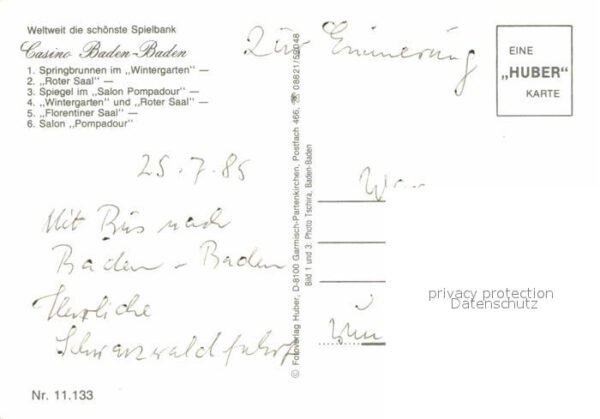 Weltweit die schönste Spielbank
Casino Baden-Baden
1. Springbrunnen im „Wintergarten" —
2. „Roter Saal" —
3. Spiegel im „Salon Pompadour" —
4. „Wintergarten" und „Roter Saal" —
5. „Florentiner Saal" —
6. Salon „Pompadour"
25.7.85
Mit Bus nach
Baden-Baden
Herrliche
Schwarzwaldfahrt
Nr. 11.133
© Fotoverlag Huber, D-8100 Garmisch-Partenkirchen, Postfach 466, ☎ 08821/52048
Bild 1 und 3: Photo Tschira, Baden-Baden
Zur Erinnerung
EINE
„HUBER"
KARTE
privacy protection
Datenschutz